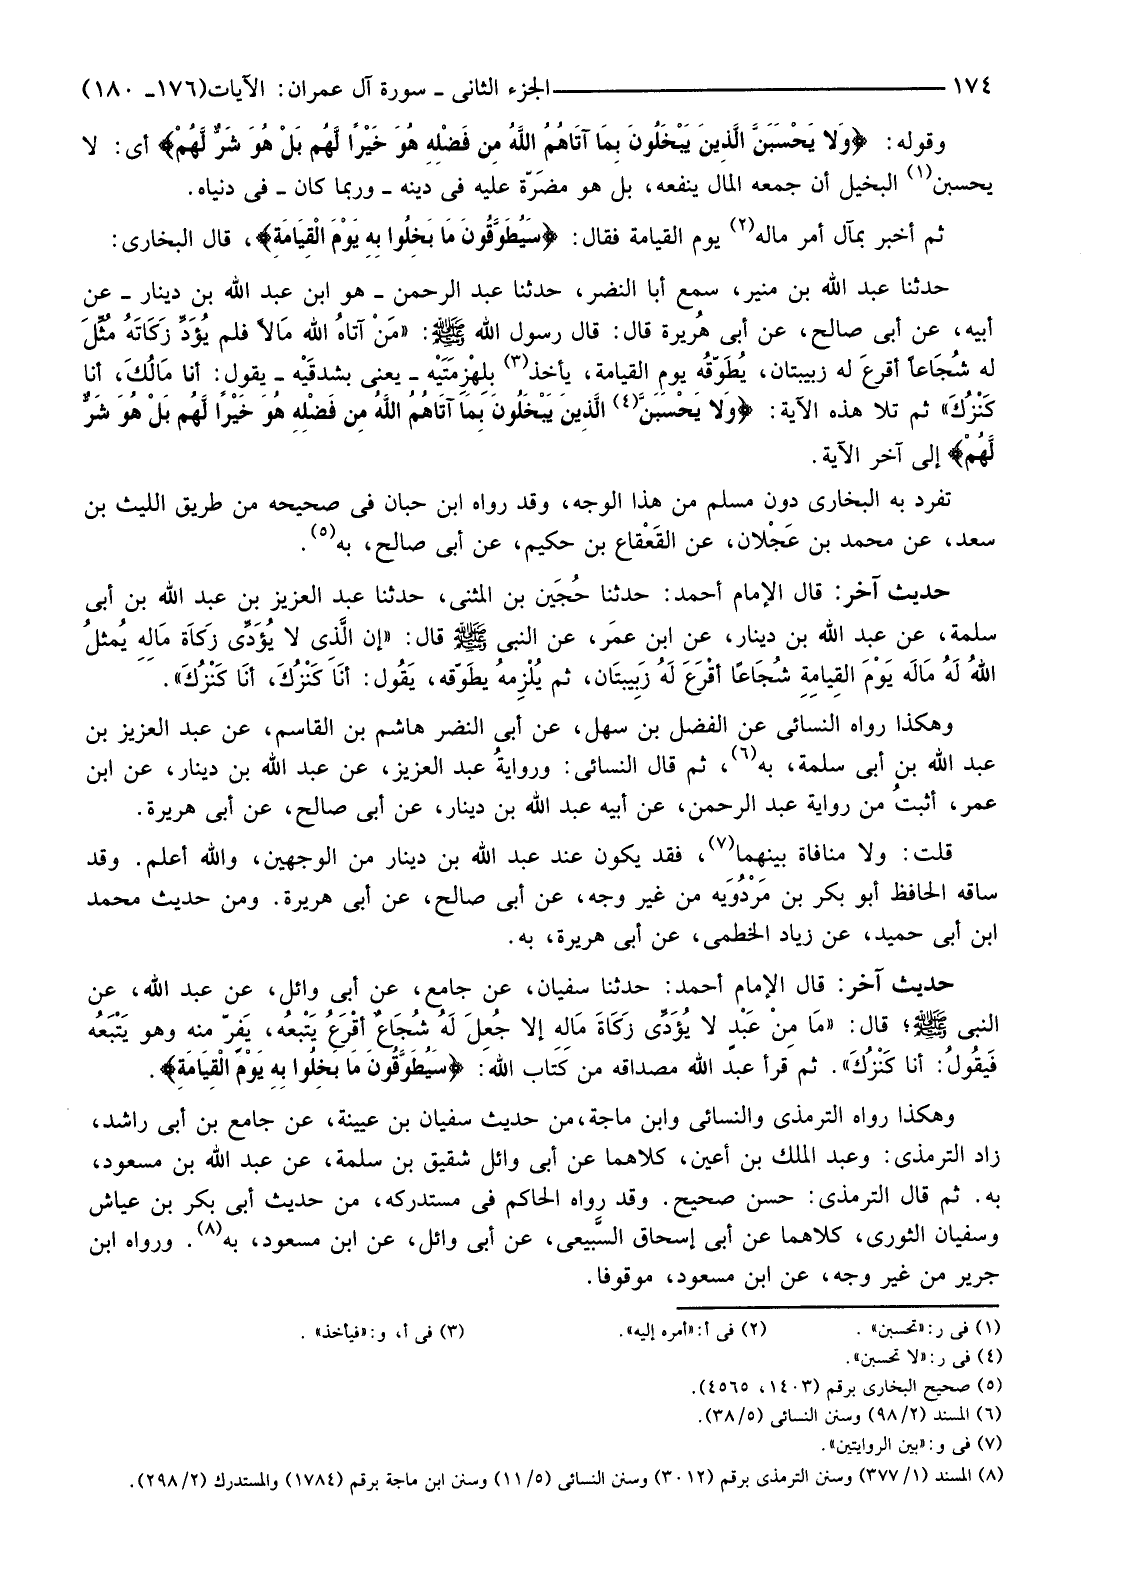 ١٧٤ ــــــ الجزء الثانى ـ سورة آل عمران: الآيات(١٧٦ـ ١٨٠)
وقوله: ﴿وَلا يَحْسَبَنَّ الَّذِينَ يَبْخَلُونَ بِمَا آتَاهُمُ اللَّهُ مِن فَضْلِهِ هُوَ خَيْرًا لَّهُم بَلْ هُوَ شَرٌّ لَّهُمْ﴾ أى: لا
يحسبن(١) البخيل أن جمعه المال ينفعه، بل هو مضَرّة عليه فى دينه ـ وربما كان ـ فى دنياه.
ثم أخبر بمآل أمر ماله(٢) يوم القيامة فقال: ﴿سَيُطَوَّقُونَ مَا بَخِلُوا بِهِ يَوْمَ الْقِيَامَةِ﴾، قال البخارى:
حدثنا عبد الله بن منير، سمع أبا النضر، حدثنا عبد الرحمن ـ هو ابن عبد الله بن دينار ـ عن
أبيه، عن أبى صالح، عن أبى هُريرة قال: قال رسول الله ﷺ: «مَنْ آتاهُ الله مَالاً فلم يُؤَدِّ زَكَاتَهُ مُثِّلَ
له شُجَاعاً أقرعَ له زبيبتان، يُطَوّقُه يوم القيامة، يأخذ(٣) بِلِهْزِمَتَيْه ـ يعنى بشدقَيْه ـ يقول: أنا مَالُكَ، أنا
كَنْزُكَ» ثم تلا هذه الآية: ﴿وَلا يَحْسَبَنَّ(٤) الَّذِينَ يَبْخَلُونَ بِمَا آتَاهُمُ اللَّهُ مِن فَضْلِهِ هُوَ خَيْرًا لَّهُم بَلْ هُوَ شَرٌّ
لَّهُمْ﴾ إلى آخر الآية.
تفرد به البخارى دون مسلم من هذا الوجه، وقد رواه ابن حبان فى صحيحه من طريق الليث بن
سعد، عن محمد بن عَجْلان، عن القَعْقاع بن حكيم، عن أبى صالح، به(٥).
حديث آخر: قال الإمام أحمد: حدثنا حُجَين بن المثنى، حدثنا عبد العزيز بن عبد الله بن أبى
سلمة، عن عبد الله بن دينار، عن ابن عمَر، عن النبى ﷺ قال: «إن الَّذِى لا يُؤَدِّى زَكَاةَ مَالِهِ يُمثلُ
اللهُ لَهُ مَالَه يَوْمَ القِيامةِ شُجَاعًا أقْرَعَ لَهُ زَبِيبتَان، ثم يُلْزِمهُ يطَوّقه، يَقُول: أنَا كَنْزُكَ، أنَا كَنْزُكَ».
وهكذا رواه النسائى عن الفضل بن سهل، عن أبى النضر هاشم بن القاسم، عن عبد العزيز بن
عبد الله بن أبى سلمة، به(٦)، ثم قال النسائى: وروايةُ عبد العزيز، عن عبد الله بن دينار، عن ابن
عمر، أثبتُ من رواية عبد الرحمن، عن أبيه عبد الله بن دينار، عن أبى صالح، عن أبى هريرة.
قلت: ولا منافاة بينهما(٧)، فقد يكون عند عبد الله بن دينار من الوجهين، والله أعلم. وقد
ساقه الحافظ أبو بكر بن مَرْدُوَيه من غير وجه، عن أبى صالح، عن أبى هريرة. ومن حديث محمد
ابن أبى حميد، عن زياد الخطمى، عن أبى هريرة، به.
حديث آخر: قال الإمام أحمد: حدثنا سفيان، عن جامع، عن أبى وائل، عن عبد الله، عن
النبى ﷺ؛ قال: «مَا مِنْ عَبْدٍ لا يُؤَدِّى زَكَاةَ مَالِهِ إلا جُعِلَ لَهُ شُجَاعٌ أقْرَعُ يَتْبعُه، يَفِرّ منه وهو يَتْبَعُه
فَيقُولُ: أنا كَنْزُكَ». ثم قرأ عبد الله مصداقه من كتاب الله: ﴿سَيُطَوَّقُونَ مَا بَخِلُوا بِهِ يَوْمَ الْقِيَامَةِ﴾.
وهكذا رواه الترمذى والنسائى وابن ماجة،من حديث سفيان بن عيينة، عن جامع بن أبى راشد،
زاد الترمذى: وعبد الملك بن أعين، كلاهما عن أبى وائل شقيق بن سلمة، عن عبد الله بن مسعود،
به. ثم قال الترمذى: حسن صحيح. وقد رواه الحاكم فى مستدركه، من حديث أبى بكر بن عياش
وسفيان الثورى، كلاهما عن أبى إسحاق السَّبِيعى، عن أبى وائل، عن ابن مسعود، به(٨). ورواه ابن
جرير من غير وجه، عن ابن مسعود، موقوفا.
(١) فى ر:«تحسبن» . (٢) فى أ:«أمره إليه». (٣) فى أ، و:«فيأخذ» .
(٤) فى ر:«لا تحسبن».
(٥) صحيح البخارى برقم (١٤٠٣، ٤٥٦٥).
(٦) المسند (٩٨/٢) وسنن النسائى (٣٨/٥).
(٧) فى و:«بين الروايتين».
(٨) المسند (٣٧٧/١) وسنن الترمذى برقم (٣٠١٢) وسنن النسائى (١١/٥) وسنن ابن ماجة برقم (١٧٨٤) والمستدرك (٢٩٨/٢).